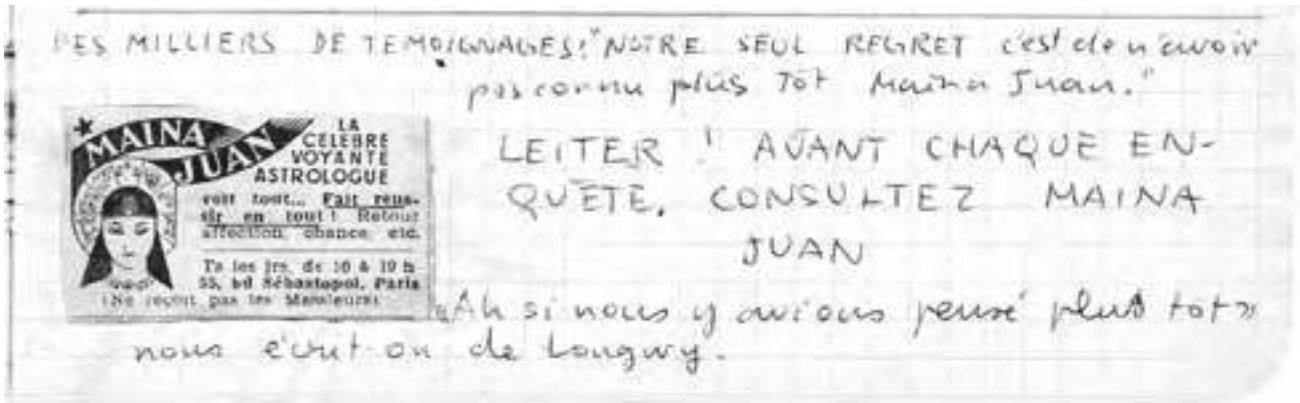 DES MILLIERS DE TEMOIGNAGES! "NOTRE SEUL REGRET c'est de n'avoir
pas connu plus Tôt Maina Juan."
MAINA
JUAN
LA
CELEBRE
VOYANTE
ASTROLOGUE
voit tout... Fait réus-
sir en tout! Retour
affection, chance, etc.
Ts les jrs. de 10 à 19 h
55, bd Sébastopol, Paris
(Ne reçoit pas les Messieurs)
LEITER ! AVANT CHAQUE EN-
QUÊTE, CONSULTEZ MAINA
JUAN
«Ah si nous y avions pensé plus tot»
nous écrit-on de Longwy.